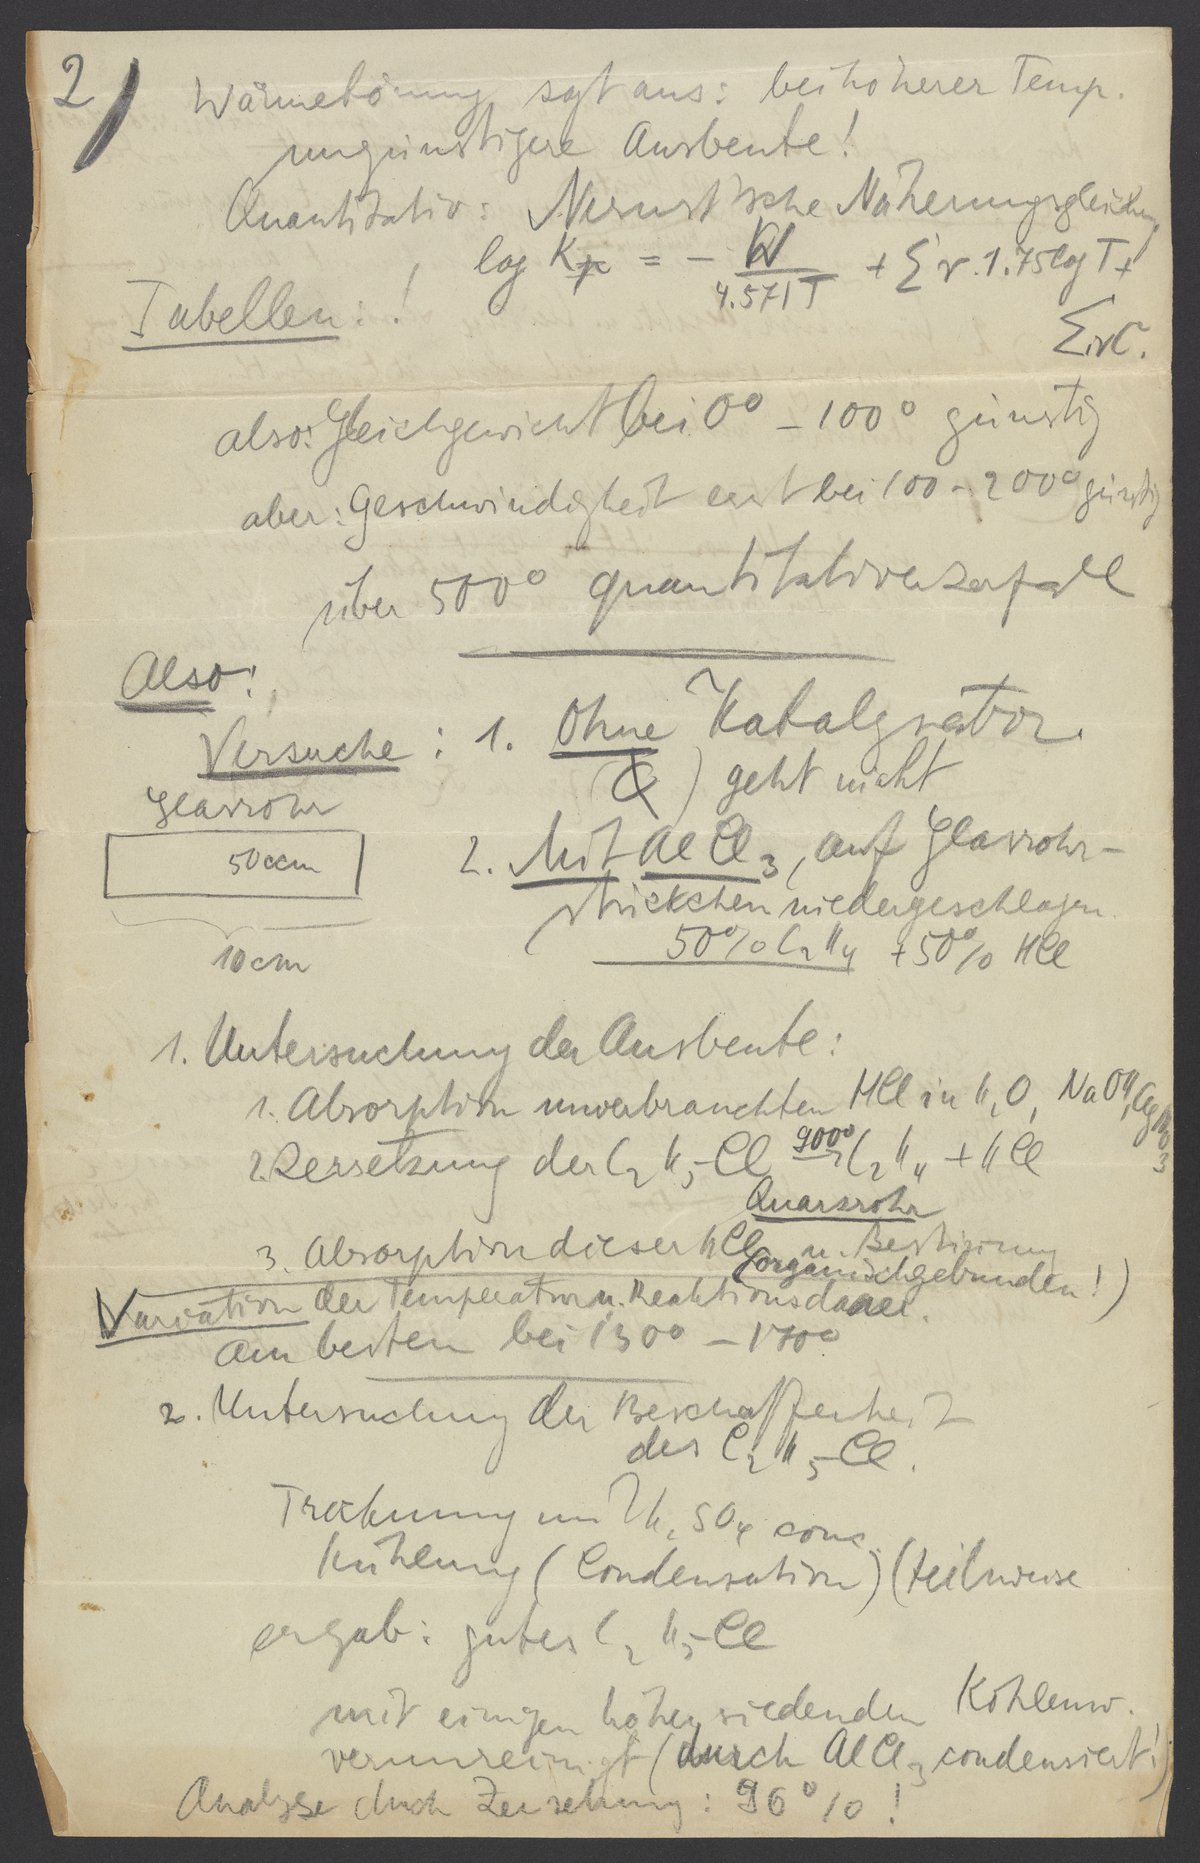 2
Wärmetönung sagt aus: bei höherer Temp.
ungünstigere Ausbeute!
Quantitativ: Nernst'sche Näherungsgleichung
log Kp = - W / 4.571T + Σν.1.75 log T +
Tabellen: ! ΣνC.
also: Gleichgewicht bei 0° – 100° günstig
aber: Geschwindigkeit erst bei 100 – 200° günstig
über 500° quantitativer Zerfall
Also:
Versuche: 1. Ohne Katalysator.
( ) geht nicht
Glasrohr
50 ccm
10 cm
2. Mit AlCl3, auf Glasrohr-
stückchen niedergeschlagen.
50% C2H4 + 50% HCl
1. Untersuchung der Ausbeute:
1. Absorption unverbrauchten HCl in H2O, NaOH, AgNO3
2. Zersetzung der C2H5-Cl 900° → C2H4 + HCl
Quarzrohr
3. Absorption dieser HCl u. Bestimmung
(organisch gebunden!)
Variation der Temperatur u. Reaktionsdauer.
am besten bei 130° – 170°
2. Untersuchung der Beschaffenheit
des C2H5-Cl.
Trocknung mit H2SO4 conc.
Kühlung (Condensation) (teilweise
ergab: gutes C2H5-Cl
mit einigen höher siedenden Kohlenw.
verunreinigt (durch AlCl3 condensiert!)
Analyse durch Zersetzung: 96%!